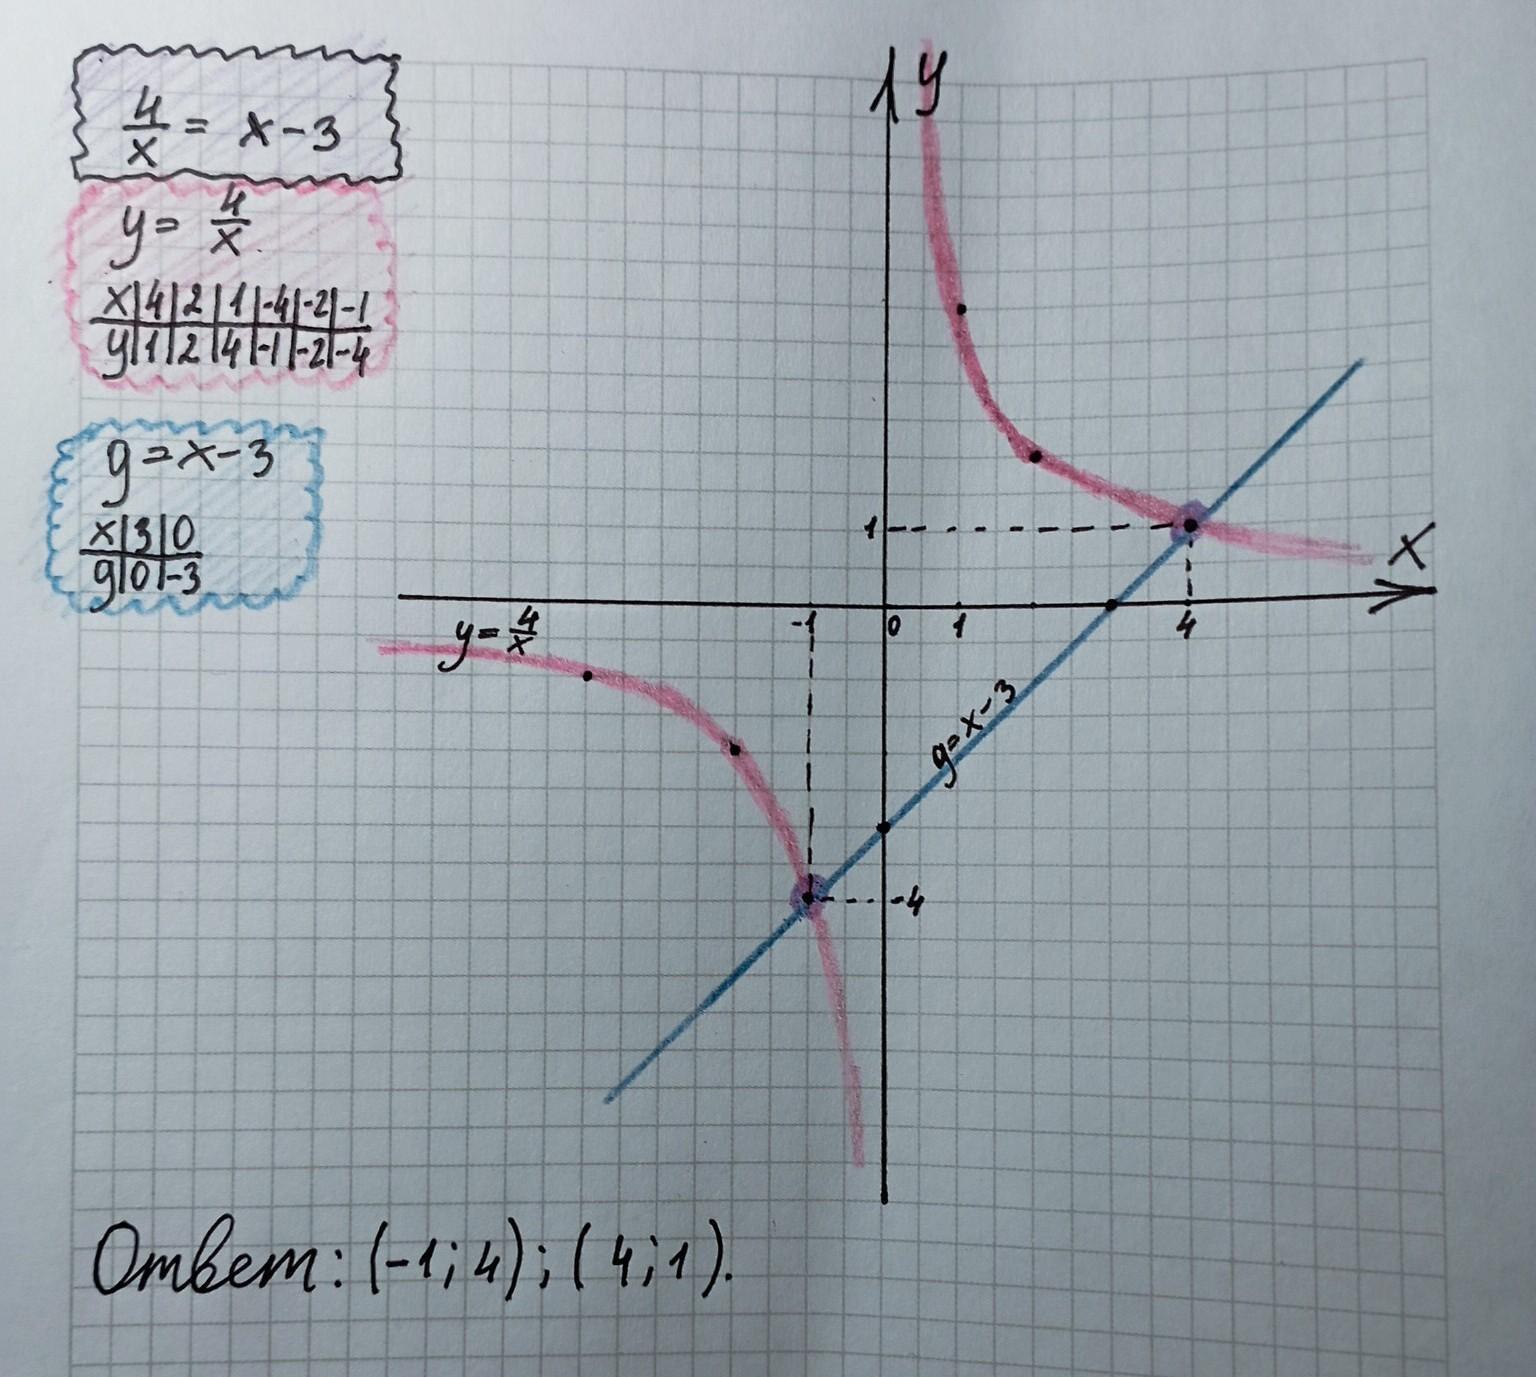 4/x = x-3
y = 4/x.
x|4|2|1|-4|-2|-1
y|1|2|4|-1|-2|-4
g=x-3
x|3|0
g|0|-3
y
x
1
-1
0
1
4
y=4/x
g=x-3
-4
Ответ: (-1; 4); (4; 1).